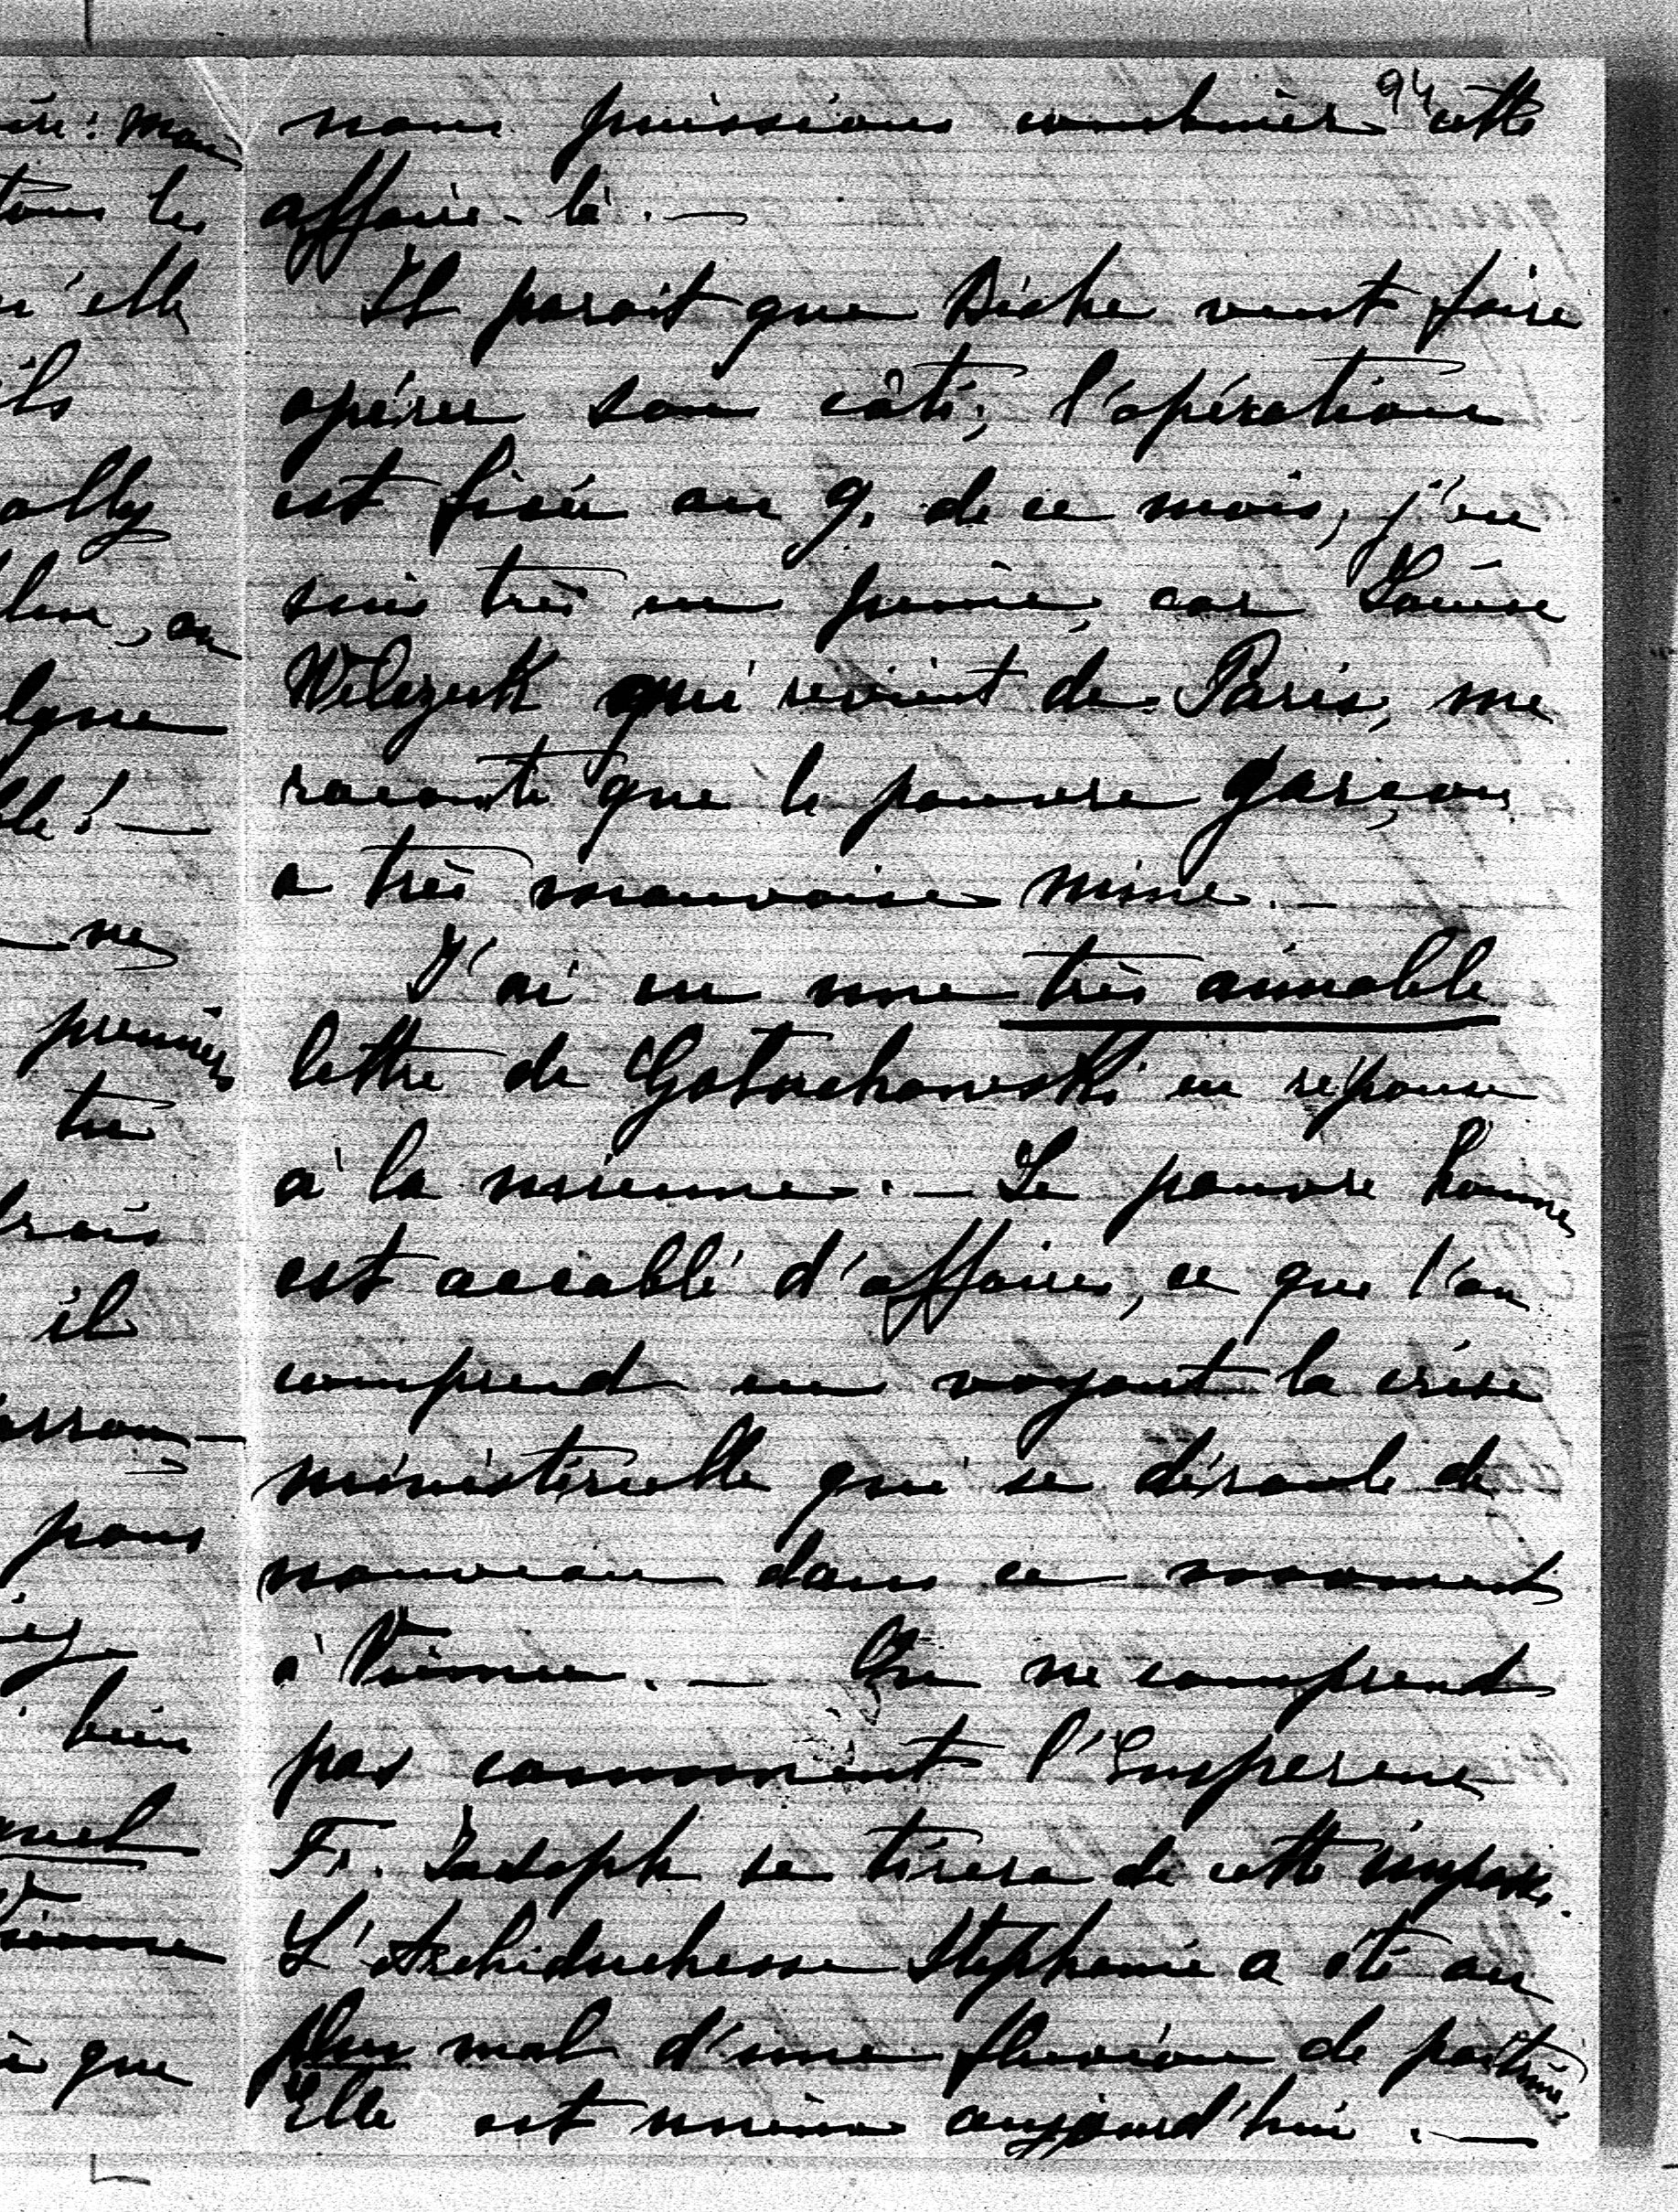 94
nous puissions combiner cette
affaire-là. —
Il parait que veut faire
opérer son côté; l'opération
est fixée au 9. de ce mois, j'en
suis très en peine, car Louise
Wilczek qui revient de Paris, me
raconte que le pauvre garçon
a très mauvaise mine. —
J'ai eu une très aimable
lettre de Goluchowski en réponse
à la mienne. — Le pauvre homme
est accablé d'affaires, ce que l'on
comprend en voyant la crise
ministérielle qui se déroule de
nouveau dans ce moment
à Vienne. — On ne comprend
pas comment l'Empereur
Fr. Joseph se tirera de cette impasse.
L'Archiduchesse Stephanie a été au
plus mal d'une fluxion de poitrine,
Elle est mieux aujourd'hui. —
tous les
qu'elle
ils
ne
premier
il
pour
bien
Vienne
que